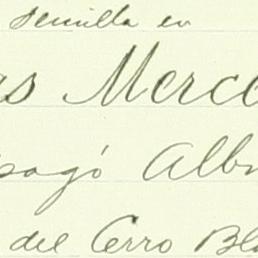 semilla en
as Merce
pagó Alb
del Cerro Bl